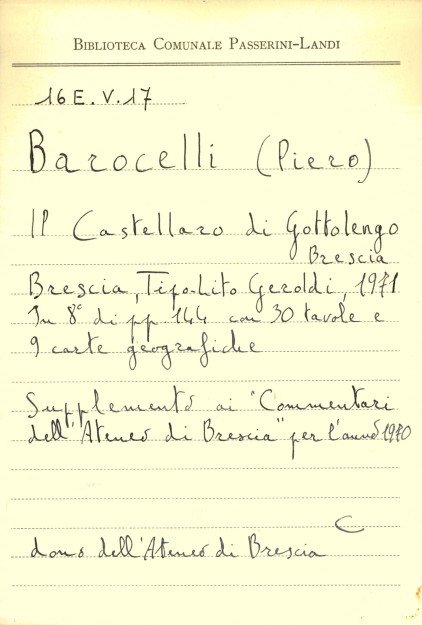 BIBLIOTECA COMUNALE PASSERINI-LANDI
16 E. V. 17
Barocelli (Piero)
Il Castellaro di Gottolengo
Brescia
Brescia, Tipo-Lito Geroldi, 1971
In 8° di pp 144 con 30 tavole e
9 carte geografiche
Supplemento ai "Commentari
dell'Ateneo di Brescia" per l'anno 1970
C
dono dell'Ateneo di Brescia